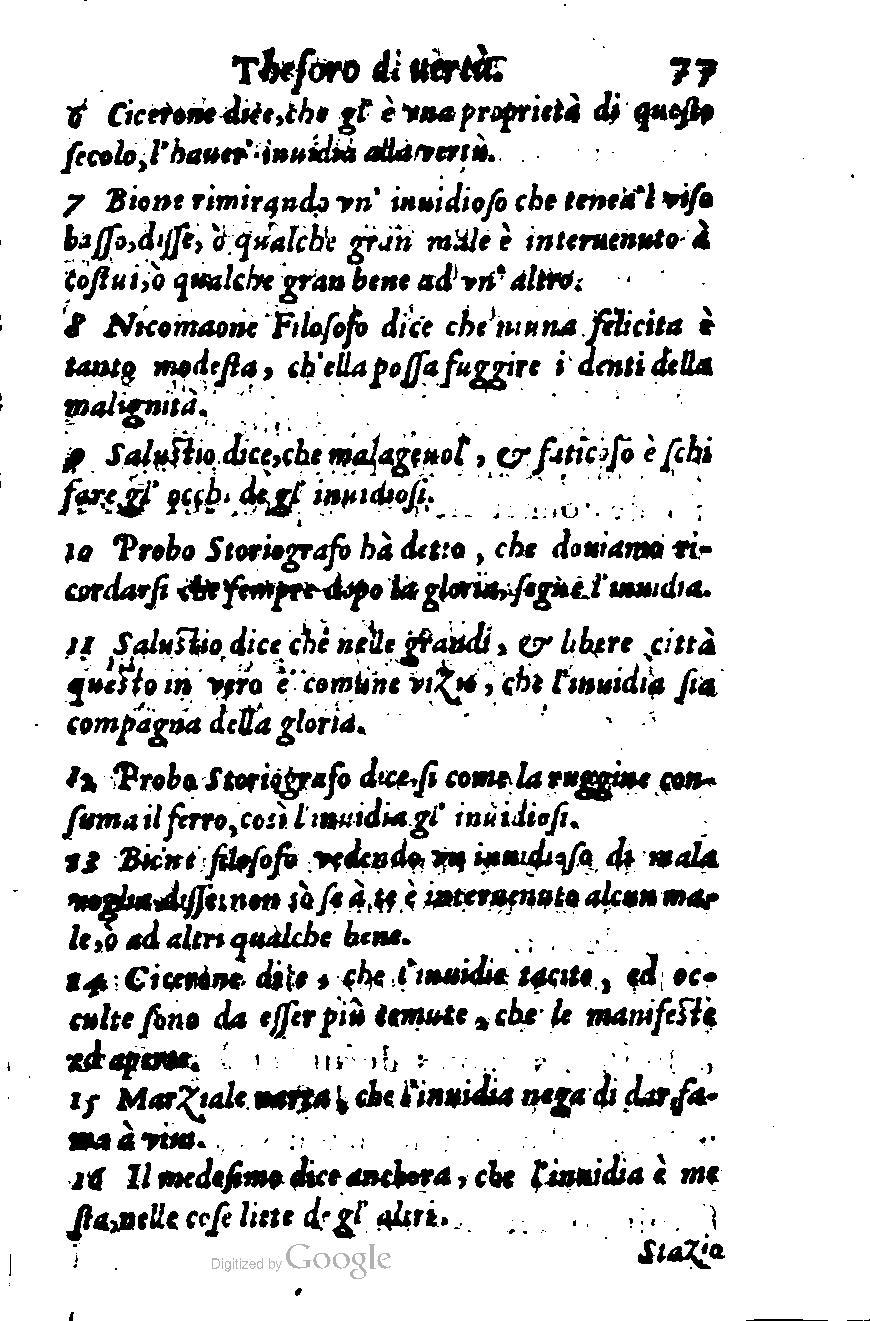 Theſoro di uertà. 77
6 Cicerone dice, che gl' è vna proprietà di queſto
ſecolo, l'hauer inuidia alla vertù.
7 Bione rimirando vn' inuidioſo che tenea'l viſo
baſſo, diſſe, ò qualche gran male è interuenuto à
coſtui, ò qualche gran bene ad vn' altro.
8 Nicomaone Filoſofo dice che niuna felicita è
tanto modeſta, ch'ella poſſa fuggire i denti della
malignità.
9 Saluſtio dice, che malageuol', & faticoſo è ſchi
fare gl' occhi de gl' inuidioſi.
10 Probo Storiografo hà detto, che douiamo ri-
cordarſi che ſempre dopo la gloria, ſegue l'inuidia.
11 Saluſtio dice che nelle grandi, & libere città
queſto in vero è comune vizio, che l'inuidia ſia
compagna della gloria.
12 Probo Storiografo dice, ſi come la ruggine con-
ſuma il ferro, così l'inuidia gl' inuidioſi.
13 Bione filoſofo vedendo vn inuidioſo di mala
voglia, diſſe, non sò ſe à te è interuenuto alcun ma-
le, ò ad altri qualche bene.
14 Cicerone dice, che l'inuidie tacite, ed oc-
culte ſono da eſſer più temute, che le manifeſte
ed aperte.
15 Marziale narra, che l'inuidia nega di dar fa-
ma à viui.
16 Il medeſimo dice anchora, che l'inuidia è me
ſta, nelle coſe liete de gl' altri.
Stazio
Digitized by Google